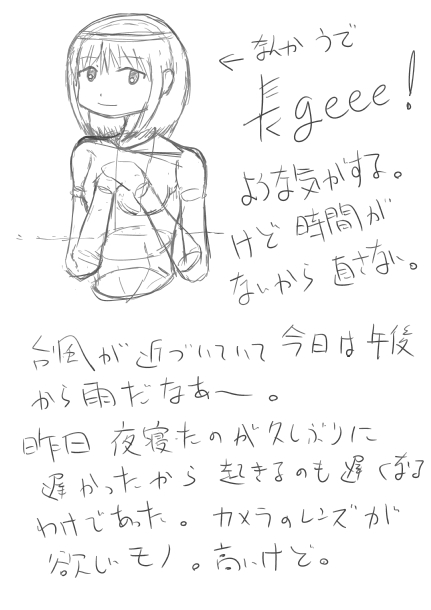 ← なんか うで
長geee!
ような気がする。
けど 時間が
ないから 直さない。
台風が 近づいていて 今日は 午後
から 雨だなあ〜。
昨日 夜寝たのが久しぶりに
遅かったから 起きるのも 遅くなる
わけであった。カメラのレンズが
欲しいモノ。高いけど。